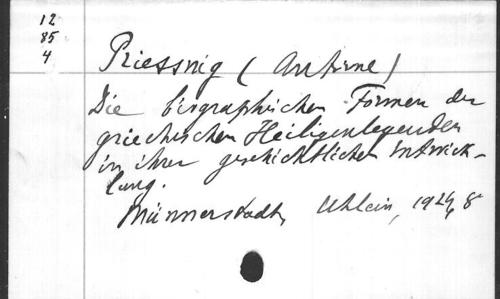 12
85
4
Priessnig (Antoine)
Die biographischen Formen der
griechischen Heiligenlegenden
in ihrer geschichtlichen Entwick-
lung.
Münnerstadt, Uhlein, 1924, 8